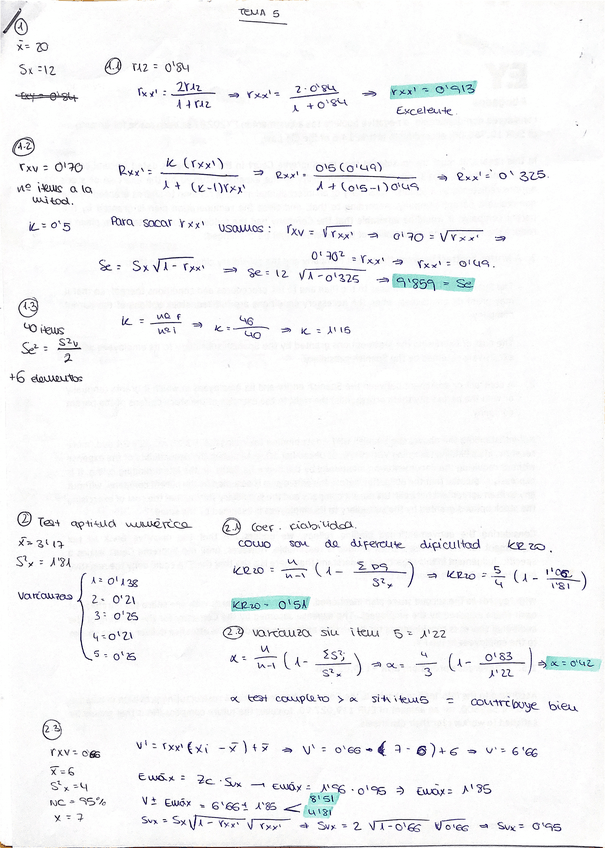 TEMA 5
①
x̄ = 20
Sx = 12
1.1 r12 = 0'84
rxx' = 2r12 / 1 + r12 ⇒ rxx' = 2 · 0'84 / 1 + 0'84 ⇒ rxx' = 0'913
Excelente.
1.2
rxv = 0'70
nº items a la
mitad.
K = 0'5
Rxx' = K (rxx') / 1 + (K-1) rxx' ⇒ Rxx' = 0'5 (0'49) / 1 + (0'5-1) 0'49 ⇒ Rxx' = 0'325.
Para sacar rxx' usamos: rxv = √rxx' ⇒ 0'70 = √rxx' ⇒
0'70² = rxx' ⇒ rxx' = 0'49.
Se = Sx √1 - rxx' ⇒ Se = 12 √1 - 0'325 ⇒ 9'859 = Se
1.3
40 items
Se² = S²v / 2
+6 elementos
K = nº f / nº i ⇒ K = 46 / 40 ⇒ K = 1'15
② Test aptitud numérica
x̄ = 3'17
S²x = 1'81
Varianzas
1 = 0'138
2 = 0'21
3 = 0'25
4 = 0'21
5 = 0'25
2.1 Coef. fiabilidad.
como son de diferente dificultad KR20.
KR20 = n / n-1 (1 - Σpq / S²x) ⇒ KR20 = 5 / 4 (1 - / 1'81)
KR20 = 0'51
2.2 varianza sin item 5 = 1'22
α = n / n-1 (1 - ΣS²j / S²x) ⇒ α = 4 / 3 (1 - 0'83 / 1'22) ⇒ α = 0'42
α test completo > α sin item 5 = contribuye bien
2.3
rxv = 0'66
x̄ = 6
S²x = 4
NC = 95%
x = 7
V' = rxx' (xi - x̄) + x̄ ⇒ V' = 0'66 · (7 - 6) + 6 ⇒ V' = 6'66
Emáx = Zc · Svx → Emáx = 1'96 · 0'95 ⇒ Emáx = 1'85
V ± Emáx = 6'66 ± 1'85 < 8'51
4'81
Svx = Sx √1 - rxx' √rxx' ⇒ Svx = 2 √1 - 0'66 √0'66 ⇒ Svx = 0'95